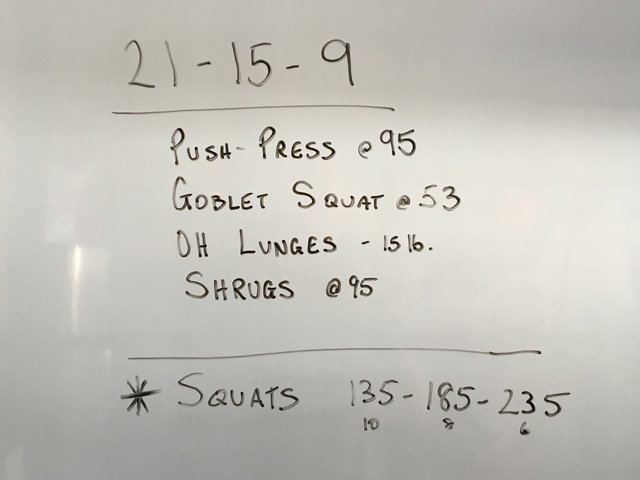 21-15-9
PUSH-PRESS @95
GOBLET SQUAT @53
OH LUNGES - 15 lb.
SHRUGS @95
* SQUATS 135-185-235
10 8 6